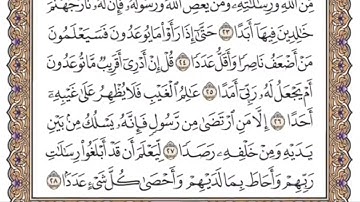 مِّنَ ٱللَّهِ وَرِسَٰلَٰتِهِۦۚ وَمَن يَعْصِ ٱللَّهَ وَرَسُولَهُۥ فَإِنَّ لَهُۥ نَارَ جَهَنَّمَ
خَٰلِدِينَ فِيهَآ أَبَدًا ٢٣ حَتَّىٰٓ إِذَا رَأَوْا۟ مَا يُوعَدُونَ فَسَيَعْلَمُونَ
مَنْ أَضْعَفُ نَاصِرًا وَأَقَلُّ عَدَدًا ٢٤ قُلْ إِنْ أَدْرِىٓ أَقَرِيبٌ مَّا تُوعَدُونَ
أَمْ يَجْعَلُ لَهُۥ رَبِّىٓ أَمَدًا ٢٥ عَٰلِمُ ٱلْغَيْبِ فَلَا يُظْهِرُ عَلَىٰ غَيْبِهِۦٓ
أَحَدًا ٢٦ إِلَّا مَنِ ٱرْتَضَىٰ مِن رَّسُولٍ فَإِنَّهُۥ يَسْلُكُ مِنۢ بَيْنِ
يَدَيْهِ وَمِنْ خَلْفِهِۦ رَصَدًا ٢٧ لِّيَعْلَمَ أَن قَدْ أَبْلَغُوا۟ رِسَٰلَٰتِ
رَبِّهِمْ وَأَحَاطَ بِمَا لَدَيْهِمْ وَأَحْصَىٰ كُلَّ شَىْءٍ عَدَدًۢا ٢٨